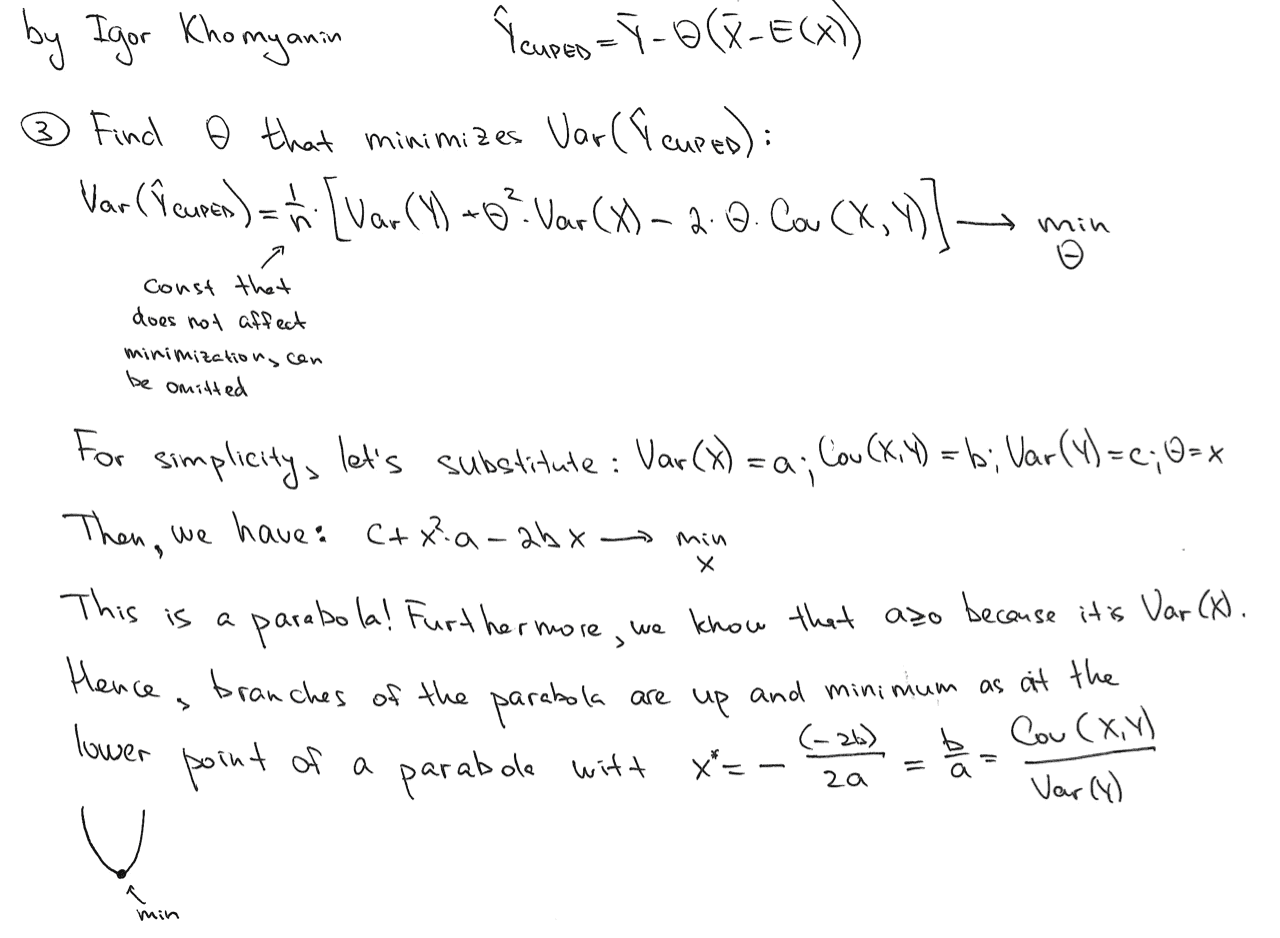 by Igor Khomyanin Ŷ_CUPED = Ȳ - Θ(X̄ - E(X))
③ Find Θ that minimizes Var(Ŷ_CUPED):
Var(Ŷ_CUPED) = 1/n · [Var(Y) + Θ² · Var(X) - 2 · Θ · Cov(X, Y)] → min Θ
const that
does not affect
minimization, can
be omitted
For simplicity, let's substitute: Var(X) = a; Cov(X,Y) = b; Var(Y) = c; Θ = x
Then, we have: c + x² · a - 2bx → min x
This is a parabola! Furthermore, we know that a≥0 because it's Var(X).
Hence, branches of the parabola are up and minimum as at the
lower point of a parabola witt x* = - (-2b)/2a = b/a = Cov(X,Y)/Var(Y)
min